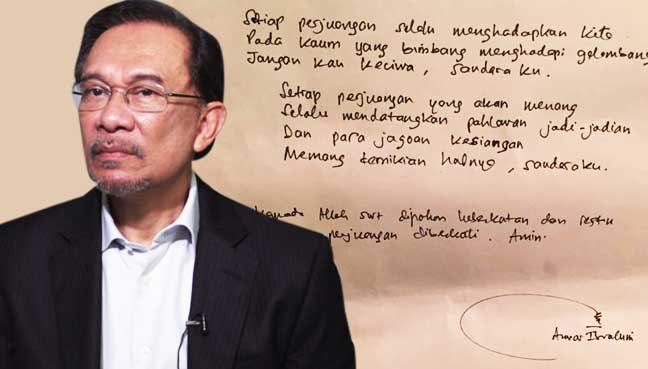 Setiap perjuangan selalu menghadapkan kita
Pada kaum yang bimbang menghadapi gelombang
Jangan kau keciwa, saudaraku.
Setiap perjuangan yang akan menang
Selalu mendatangkan pahlawan jadi-jadian
Dan para jagoan kesiangan
Memang demikian halnya, saudaraku.
Allah swt dipohon kekuatan dan restu
perjuangan diberkati. Amin.
Anwar Ibrahim